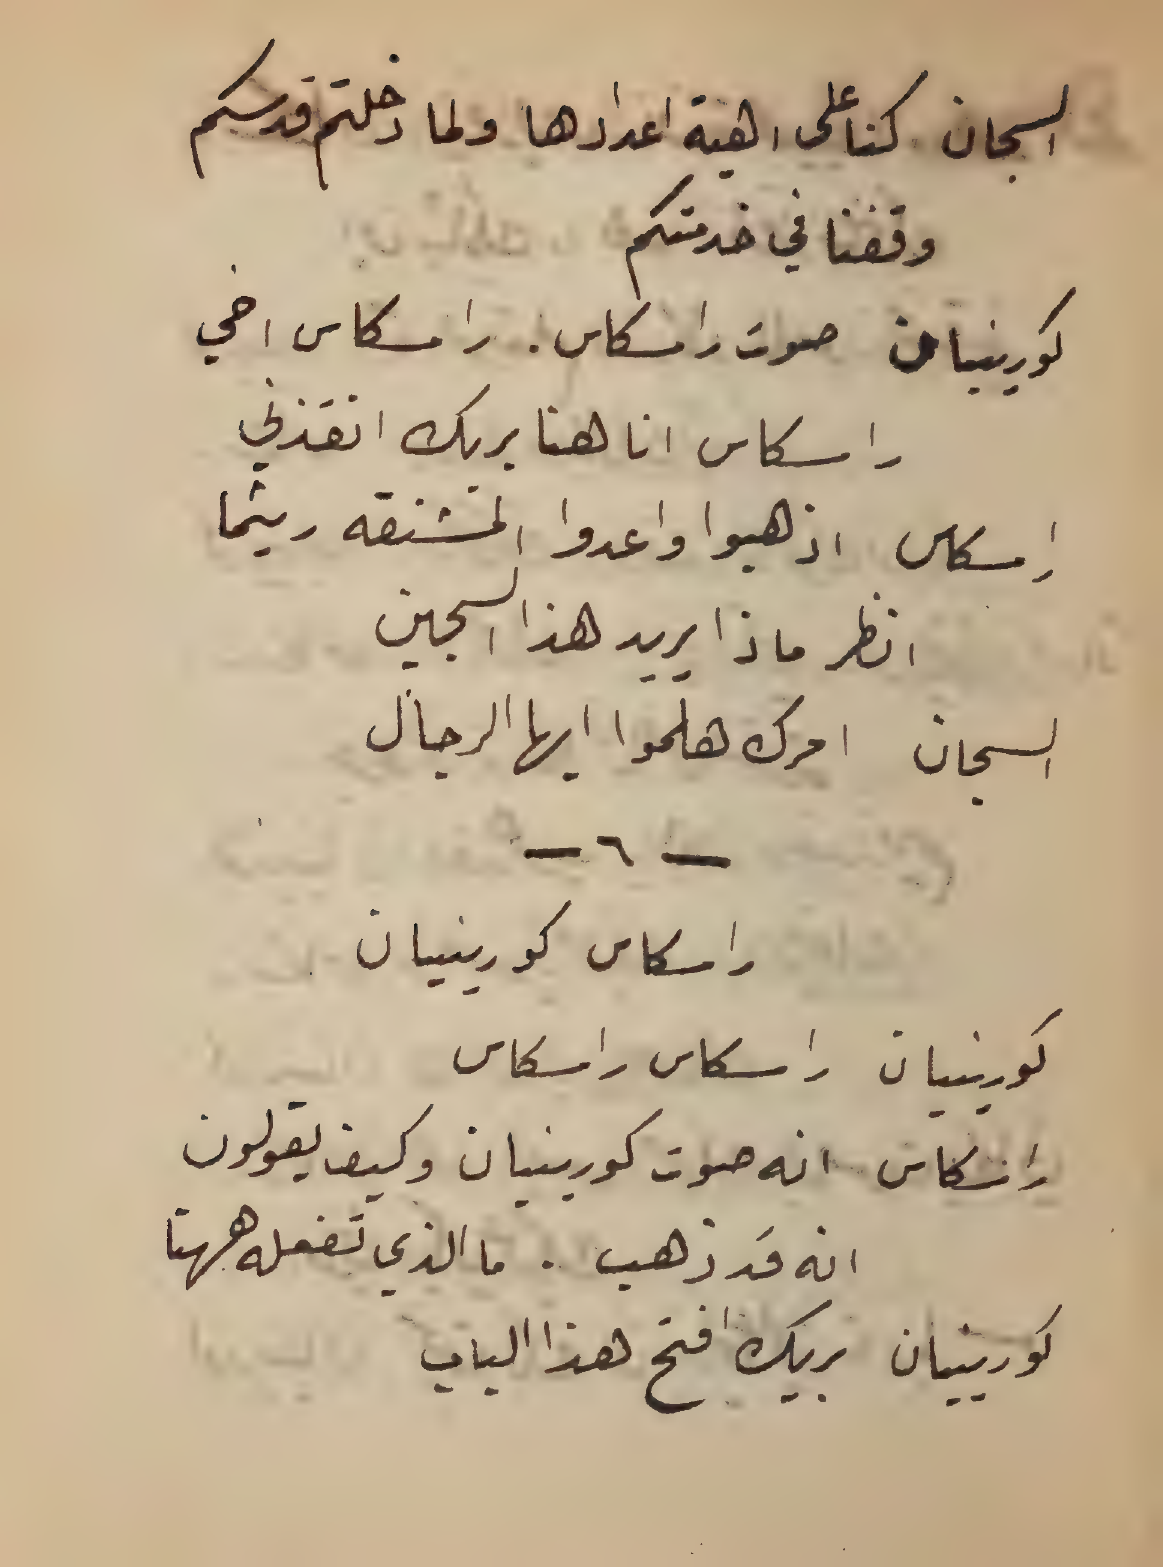 السجان كنا على اهبة اعدادها ولما دخلتم قدسكم
وقفنا في خدمتكم
كورينيان صوت راسكاس. راسكاس اخي
راسكاس انا هنا بربك انقذني
راسكاس اذهبوا واعدوا المشنقه ريثما
انظر ماذا يريد هذا السجين
السجان امرك هلموا ايها الرجال
— ٦ —
راسكاس كورينيان
كورينيان راسكاس راسكاس
راسكاس انه صوت كورينيان وكيف يقولون
انه قد ذهب . ما الذي تفعله ههنا
كورينيان بربك افتح هذا الباب